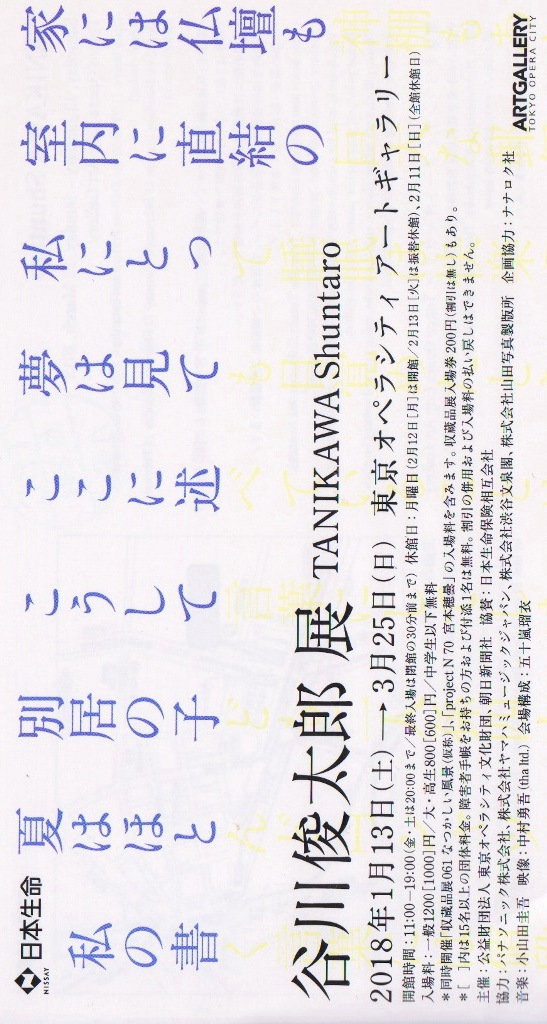 家には仏壇も
室内に直結の
私にとっ
夢は見て
ここに述
こうして
別居の子
夏はほと
私の書
NISSAY
日本生命
谷川俊太郎 展 TANIKAWA Shuntaro
2018年1月13日(土)→3月25日(日) 東京オペラシティ アートギャラリー
開館時間:11:00―19:00(金・土は20:00まで/最終入場は閉館の30分前まで) 休館日:月曜日(2月12日[月]は開館/2月13日[火]は振替休館)、2月11日[日](全館休館日)
入場料:一般1200[1000]円/大・高生800[600]円/中学生以下無料
*同時開催「収蔵品展061 なつかしい風景(仮称)」、「project N 70 宮本穂曇」の入場料を含みます。収蔵品展入場券200円(割引は無し)もあり。
*[ ]内は15名以上の団体料金。障害者手帳をお持ちの方および付添1名は無料。割引の併用および入場料の払い戻しはできません。
主催:公益財団法人 東京オペラシティ文化財団、朝日新聞社 協賛:日本生命保険相互会社
協力:パナソニック株式会社、株式会社ヤマハミュージックジャパン、株式会社渋谷文泉閣、株式会社山田写真製版所 企画協力:ナナロク社
音楽:小山田圭吾 映像:中村勇吾(tha ltd.) 会場構成:五十嵐瑠衣
ARTGALLERY
TOKYO OPERA CITY